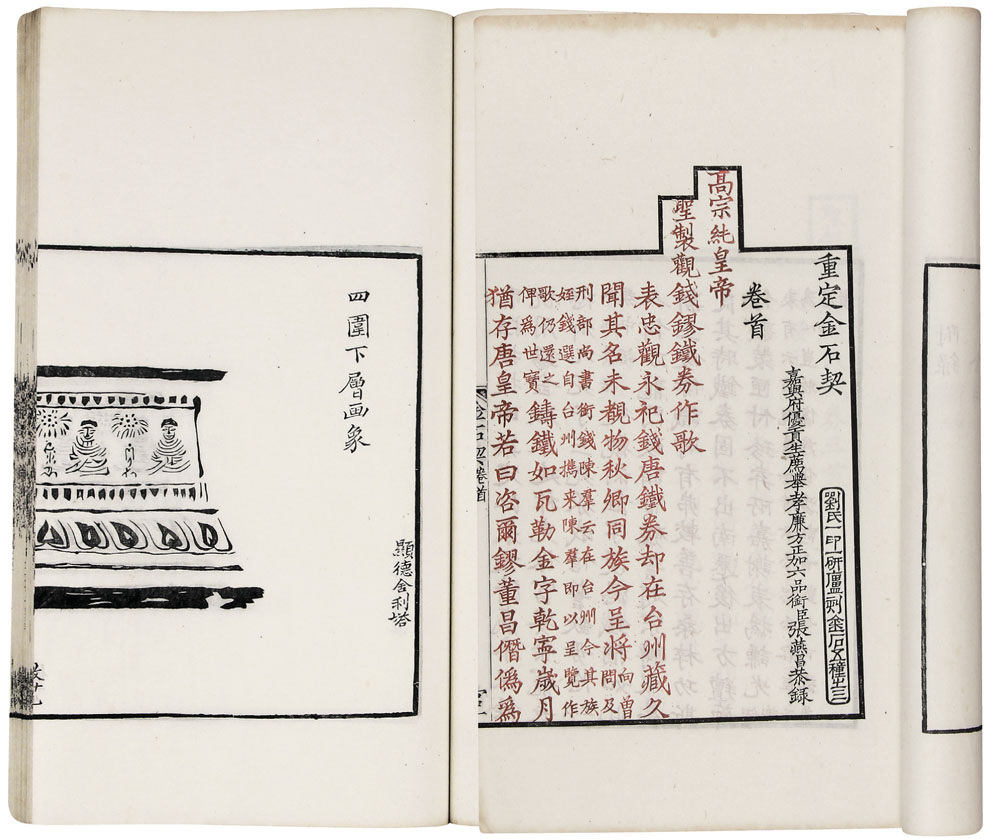 重定金石契
嘉興府優貢生薦舉孝廉方正加六品銜臣張燕昌恭錄
劉氏一印一研廬刻金石五種之三
卷首
高宗純皇帝
聖製觀錢鏐鐵券作歌
表忠觀永祀錢唐鐵券却在台州藏久
聞其名未覩物秋卿同族今呈將向曾問及
刑部尚書銜錢陳羣云在台州今其族
姪錢選自台州攜来陳羣即以呈覽作
歌仍還之
俾爲世寶鑄鐵如瓦勒金字乾寧歲月
猶存唐皇帝若曰咨爾鏐董昌僭僞爲
金石契卷首
四圍下層画象
顯德舍利塔
附錄